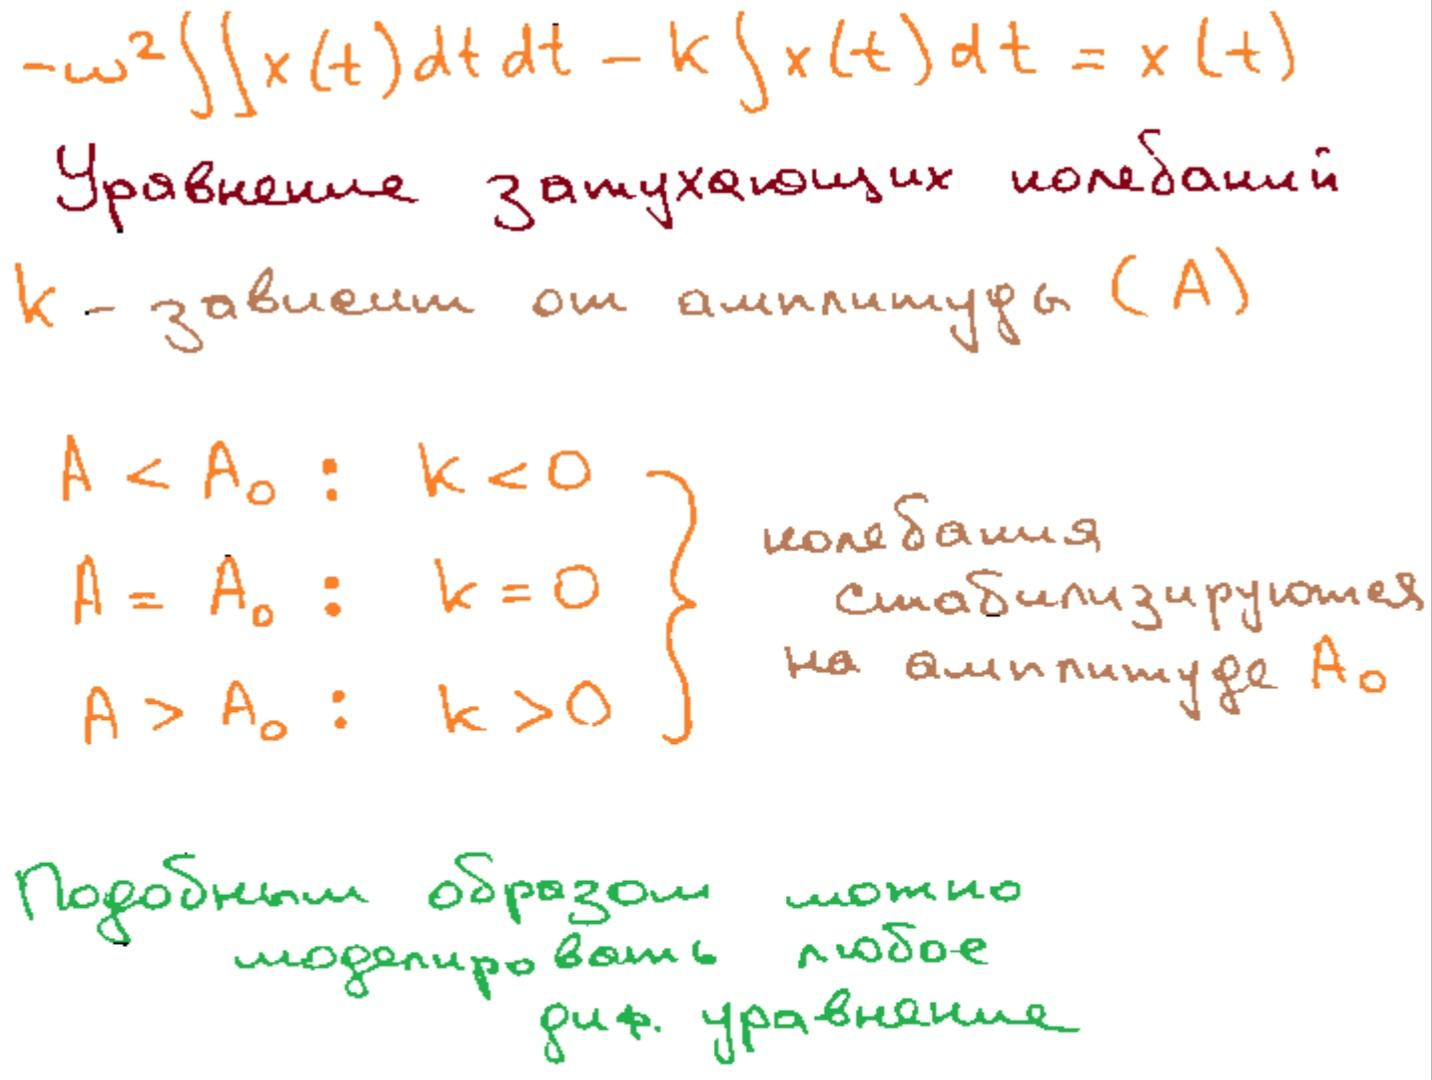 -ω²∫∫x(t)dtdt - k∫x(t)dt = x(t)
Уравнение затухающих колебаний
k - зависит от амплитуды (A)
A < A₀ : k < 0
A = A₀ : k = 0
A > A₀ : k > 0
колебания
стабилизируются
на амплитуде A₀
Подобным образом можно
моделировать любое
диф. уравнение